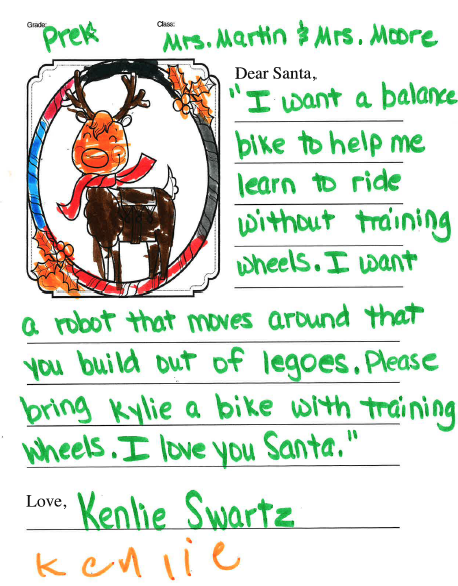 Grade: Class:
PreK Mrs. Martin & Mrs. Moore
Dear Santa,
"I want a balance
bike to help me
learn to ride
without training
wheels. I want
a robot that moves around that
you build out of legoes. Please
bring Kylie a bike with training
wheels. I love you Santa."
Love, Kenlie Swartz
Kenlie